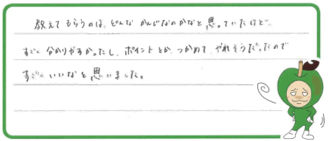 教えてもらうのは、どんなかんじなのかなと思っていたけど、
すごく分かりやすかったし、ポイントとか、つかめて やれそうだったので
すごくいいなと思いました。